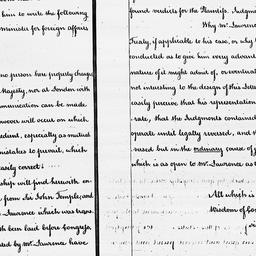 him to write the following
Minister for foreign affairs
no person here properly charged
Majesty, nor at London with
communication can be made
however will occur on which
expedient, especially as mutual
mistakes to prevail, which
easily correct:
ship will find herewith en-
from Sir John Temple, and
Mr Lawrence which was trans-
th been laid before Congress
ted by Mr Lawrence have
found verdicts for the Plaintiffs. Judgm
Why Mr Lawrence
Treaty, if applicable to his case, or why t
conducted as to give him every advan
nature of it might admit of, or eventual
not interesting to the design of this Lett
easily perceive that his representation
rate, that the Judgments contained
operate until legally reversed, and th
versed but in the ordinary course of j
which is as open to Mr Lawrence as t
All which is
Wisdom of Con